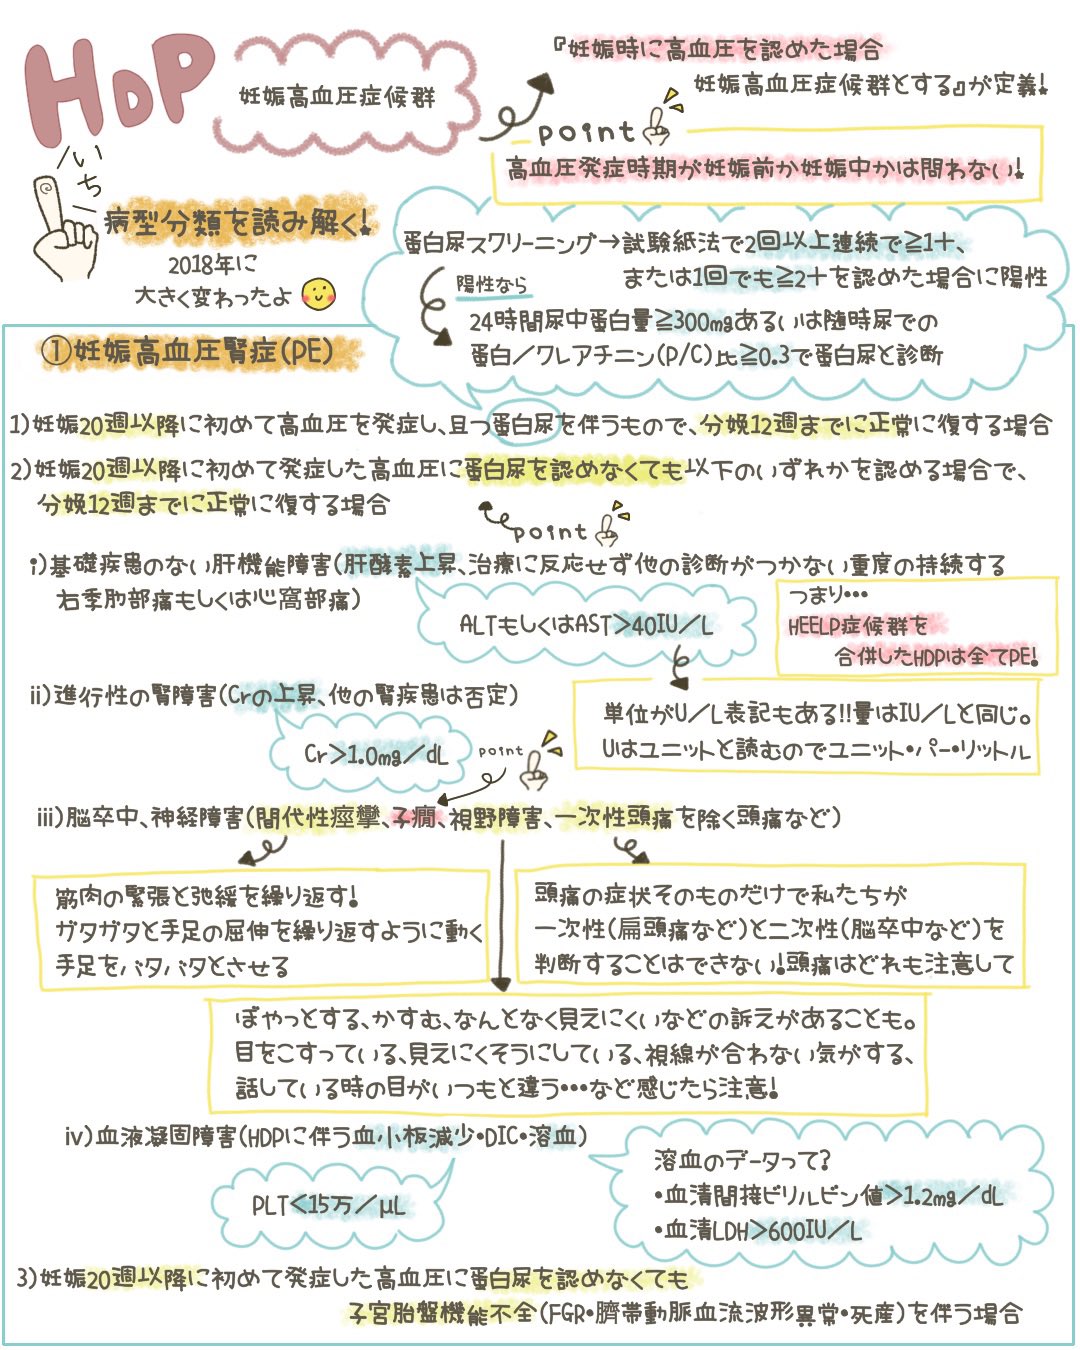 HDP
妊娠高血圧症候群
『妊娠時に高血圧を認めた場合
妊娠高血圧症候群とする』が定義!
point
高血圧発症時期が妊娠前か妊娠中かは問わない!
いち
病型分類を読み解く!
2018年に
大きく変わったよ
蛋白尿スクリーニング→試験紙法で2回以上連続で≧1+、
または1回でも≧2+を認めた場合に陽性
陽性なら
24時間尿中蛋白量≧300mgあるいは随時尿での
蛋白/クレアチニン(P/C)比≧0.3で蛋白尿と診断
①妊娠高血圧腎症(PE)
1)妊娠20週以降に初めて高血圧を発症し、且つ蛋白尿を伴うもので、分娩12週までに正常に復する場合
2)妊娠20週以降に初めて発症した高血圧に蛋白尿を認めなくても以下のいずれかを認める場合で、
分娩12週までに正常に復する場合
point
i)基礎疾患のない肝機能障害(肝酵素上昇、治療に反応せず他の診断がつかない重度の持続する
右季肋部痛もしくは心窩部痛)
ALTもしくはAST>40IU/L
つまり・・・
HEELP症候群を
合併したHDPは全てPE!
ii)進行性の腎障害(Crの上昇、他の腎疾患は否定)
単位がU/L表記もある!!量はIU/Lと同じ。
Uはユニットと読むのでユニット・パー・リットル
Cr>1.0mg/dL
point
iii)脳卒中、神経障害(間代性痙攣、子癇、視野障害、一次性頭痛を除く頭痛など)
筋肉の緊張と弛緩を繰り返す!
ガタガタと手足の屈伸を繰り返すように動く
手足をバタバタとさせる
頭痛の症状そのものだけで私たちが
一次性(扁頭痛など)と二次性(脳卒中など)を
判断することはできない!頭痛はどれも注意して
ぼやっとする、かすむ、なんとなく見えにくいなどの訴えがあることも。
目をこすっている、見えにくそうにしている、視線が合わない気がする、
話している時の目がいつもと違う・・・など感じたら注意!
iv)血液凝固障害(HDPに伴う血小板減少・DIC・溶血)
PLT<15万/μL
溶血のデータって?
・血清間接ビリルビン値>1.2mg/dL
・血清LDH>600IU/L
3)妊娠20週以降に初めて発症した高血圧に蛋白尿を認めなくても
子宮胎盤機能不全(FGR・臍帯動脈血流波形異常・死産)を伴う場合